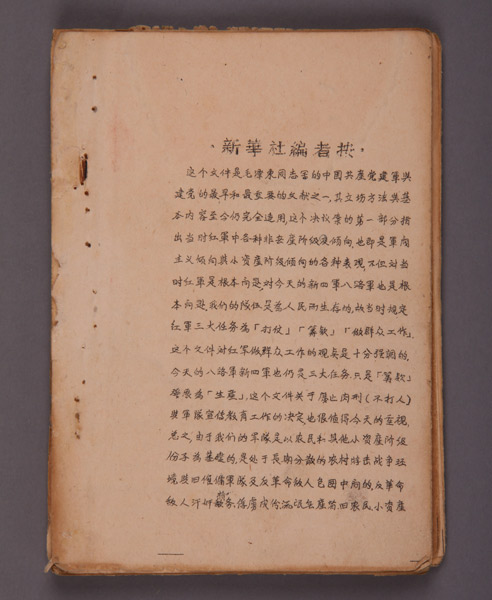 、新華社編者按，
这个文件是毛澤東同志写的中国共產党建軍與
建党的最早和最重要的文献之一，其立場方法與基
本内容至今仍完全适用，这个决议案的第一部分指
出当时紅軍中各种非無產階級傾向，也即是軍閥
主义傾向與小資產階級傾向的各种表現，不但对当
时紅軍是根本问題，对今天的新四軍八路軍也是根
本问題，我们的队伍是為人民而生存的，故当时規定
紅軍三大任务為「打仗」「筹欵」「做群众工作。
这个文件对紅軍做群众工作的現矣是十分强調的，
今天的八路軍新四軍也仍是三大任务，只是「筹欵」
發展為「生產」，这个文件关于廢止肉刑（不打人）
與軍隊宣传教育工作的决定，也很值得今天的重視，
总之，由于我们的軍隊是以农民和其他小資產階級
份子為基礎的，是处于長期分散的农村游击战争环
境，與旧僱傭軍隊及反革命敌人包圍中间的，反革命
敌人汗奸特务，落後成份，流氓 農民小資產